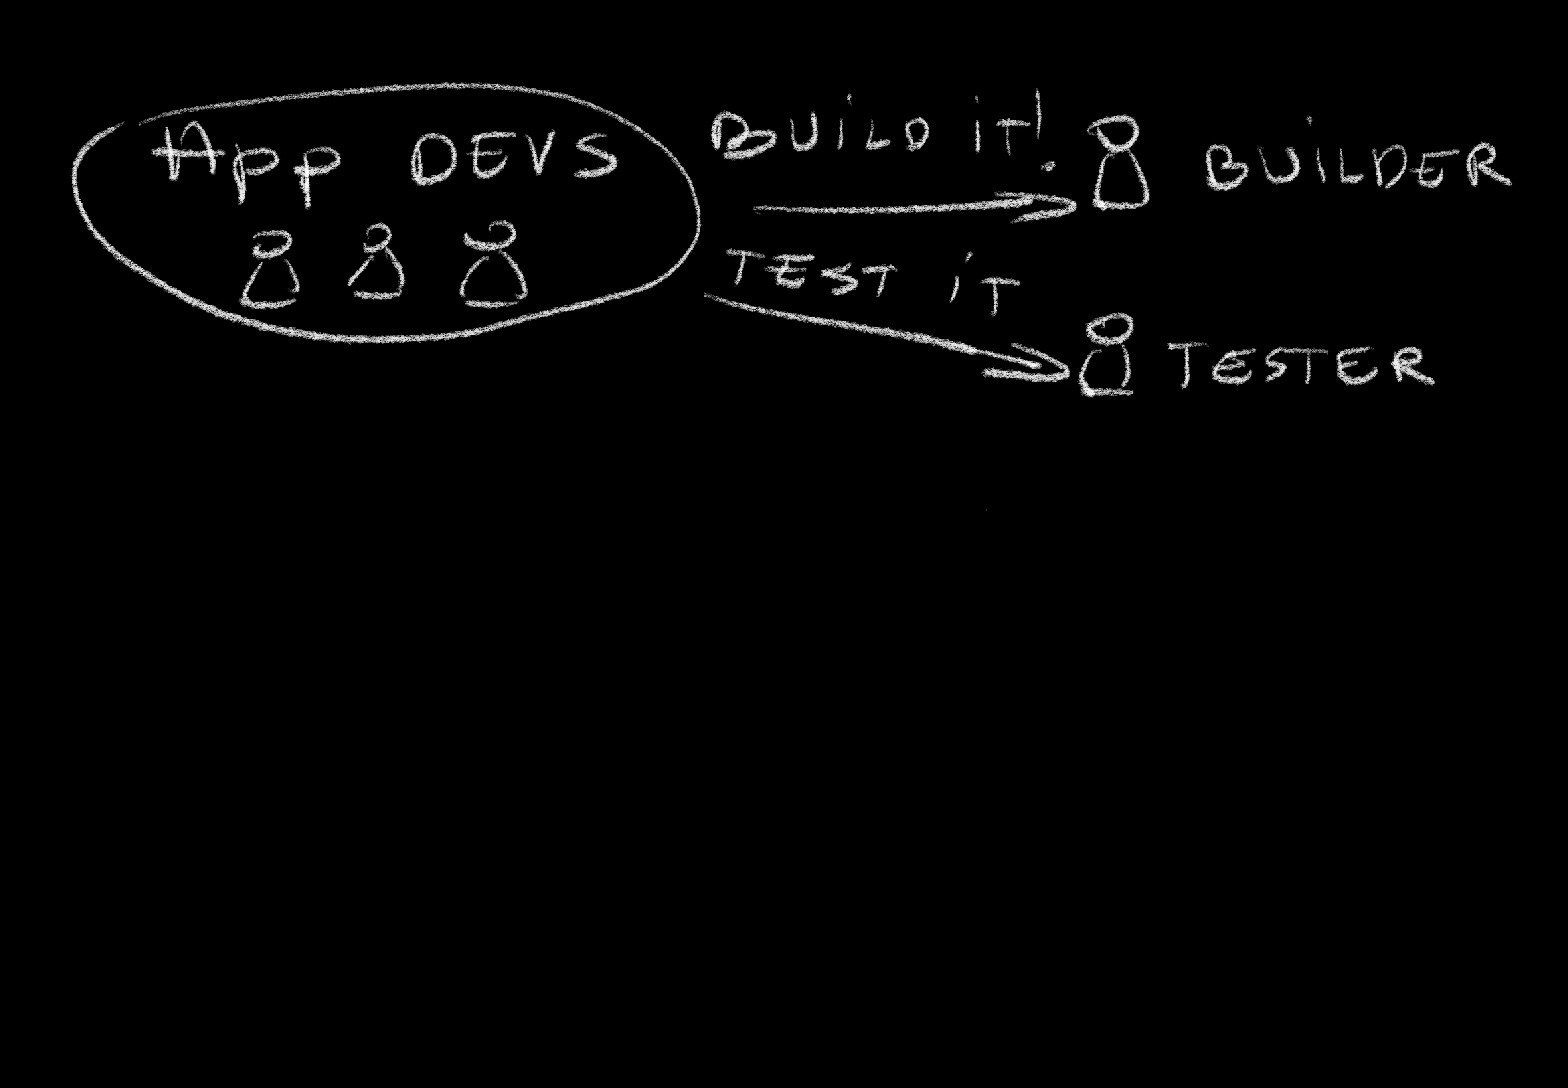 App DEVS
BUiLD iT!
BUiLDER
TEST iT
TESTER